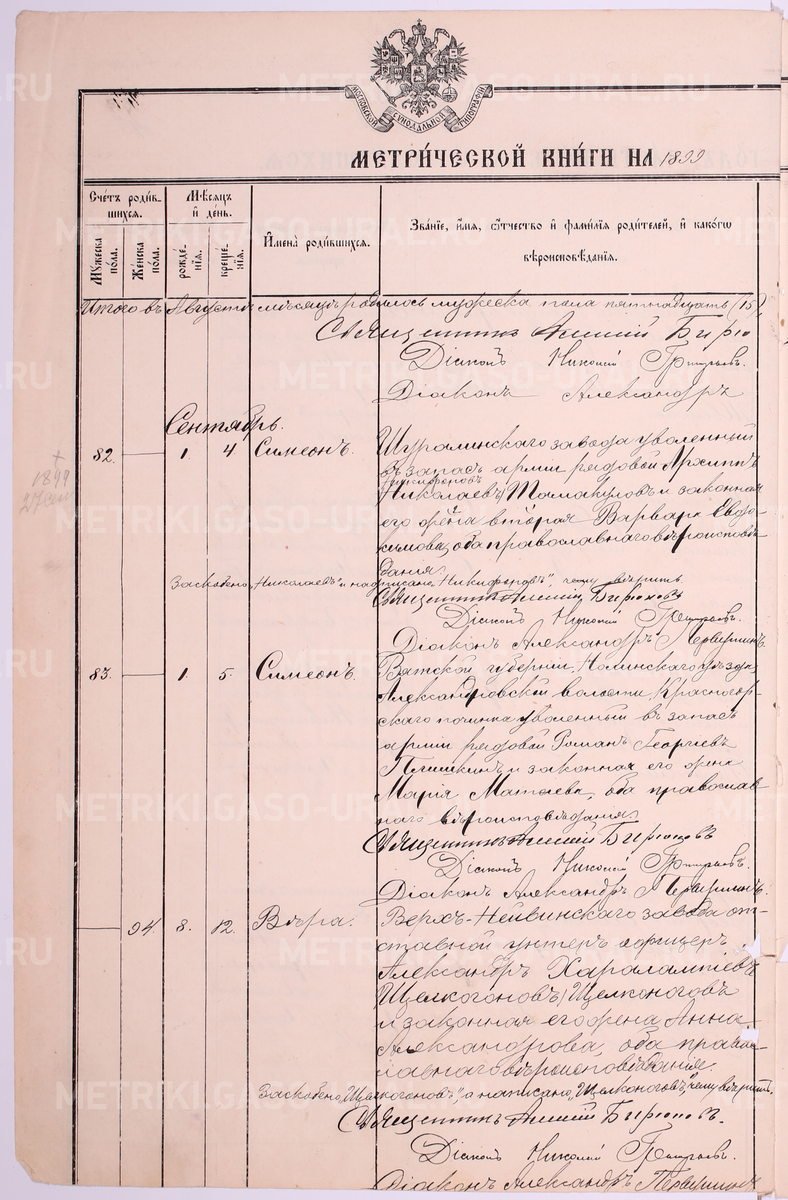 МОСКОВСКОЙ СУНОДАЛЬНОЙ ТИПОГРАФІИ
МЕТРИ́ЧЕСКОЙ КНИ́ГИ НА 1899
Сче́тъ роди́в-
шихся.
Мꙋ́жеска по́ла.
Же́нска по́ла.
Мѣ́сяцъ
и҆ де́нь.
рожде́-
нїя.
креще́-
нїя.
И҆мена̀ роди́вшихся.
Зва́нїе, и҆́мя, ѻ҆́тчество и҆ фами́лїя роди́телей, и҆ како́гѡ
вѣроисповѣ́данїя.
Итого въ Августѣ мѣсяцѣ родилось мужеска пола пятнадцать (15),
Священникъ Бирю
Діаконъ Николай
Діаконъ Александръ
Сентябрь.
82. 1. 4 Симеонъ. Шуралинскаго завода уволенный
въ запасъ арміи рядовой Архипъ
Никифоровъ
Николаевъ) Томакуловъ и законная
его жена вторая Варвара Евдо-
кимова, оба православнаго вѣроисповѣ-
данія.
Заскоблено „Николаевъ" и надписано „Никифоровъ", чему вѣрить.
Священникъ Бирюковъ
Діаконъ Николай
Діаконъ Александръ
1899
27 сен
83. 1. 5. Симеонъ. Вятской губерніи, Нолинскаго уѣзда,
Александровской волости, Красногор-
скаго починка уволенный въ запасъ
арміи рядовой Романъ Георгіевъ
Плишкинъ и законная его жена
Марія Матѳеева, оба православ-
наго вѣроисповѣданія.
Священникъ Бирюковъ
Діаконъ Николай
Діаконъ Александръ
94. 8. 12. Вѣра. Верхъ-Нейвинскаго завода от-
ставной унтеръ офицеръ
Александръ Харалампіевъ
Щелкогоновъ) Щелконоговъ
и законная его жена Анна
Александрова, оба право-
славнаго вѣроисповѣданія.
Заскоблено „Щелкогоновъ", а написано „Щелконоговъ", чему вѣрить.
Священникъ Бирюковъ.
Діаконъ Николай
Діаконъ Александръ
METRIKI.GASO-URAL.RU